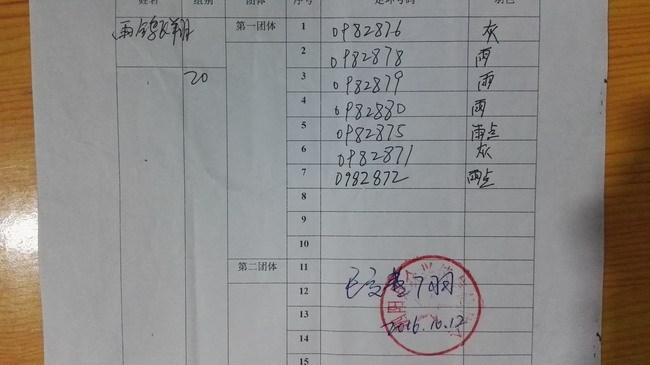 姓名 组别 团体 序号 足环号码 羽色
第一团体 1 0982876 灰
20
2 0982878 雨
3 0982879 雨
4 0982880 雨
5 0982875 雨点
6 0982871 灰
7 0982872 雨点
8
9
10
第二团体 11
12
13
14
15
2016.10.12